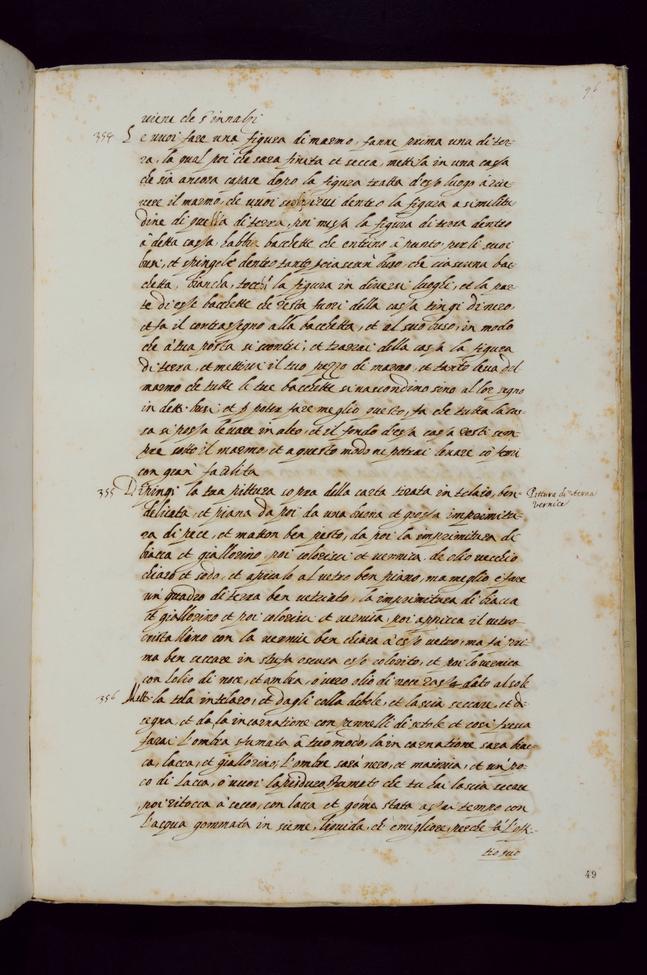 96
viene che s'innalzi
354 Se vuoi fare una figura di marmo, fanne prima una di ter-
ra, la qual poi che sara finita et secca, mettila in una cassa
che sia ancora capace dopo la figura tratta d'esso luogo à rice-
vere il marmo, che vuoi scolpirvi dentro la figura a similitu
dine di quella di terra, poi messa la figura di terra dentro
à detta cassa habbi bacchette che entrino à punto, per li suoi
busi, et spingele dentro tanto per ciascun buso, che ciascuna bac
chetta, bianca, tocchi la figura in diversi luoghi, et la par-
te di esse bacchette che resta fuori della cassa tingi di nero,
et fa il contrasegno alla bacchetta, et al suo buso, in modo
che à tua posta si scontri, et trarrai della cassa la figura
di terra, et mettivi il tuo pezzo di marmo, et tanto leva del
marmo che tutte le tue bacchette si nascondino sino al lor segno
in detti busi, et p poter fare meglio questo, fa che tutta la cas-
sa si possa levare in alto, et il fondo d'essa cassa resti sem
pre sotto il marmo, et a questo modo ne potrai levare cō ferri
con gran facilita
355 Dipingi la tua pittura sopra della carta tirata in telaio, ben
delicata, et piana da poi da una buona et grossa imprimitu
ra di pece, et matton ben pesto, da poi la imprimitura di
biacca et giallorino, poi colorisci et vernica de olio vecchio
chiaro et sodo, et apicalo al vetro ben piano, ma meglio è fare
un quadro di terra ben vetriato, la imprimitura di biacca
et giallorino et poi colorisci et vernica, poi appicca il vetro
cristallino con la vernice ben chiara à esso vetro, ma fa pri
ma ben seccare in stufa oscura esso colorito, et poi lo vernica
con l'olio di noce, et ambra, ò vero olio di noce rassodato al sole
Pittura di eterna
vernice
356 Mett. la tela in telaro, et dagli colla debole, et lascia seccare, et di
segna, et da la incarnatione con pennelli di setole et così fresca
farai l'ombra sfumata à tuo modo, la incarnatione sara biac
ca, lacca, et giallorino, l'ombra sarà nero, et maiorica, et un po
co di lacca, ò vuoi lapis duro sfumato che tu hai lascia seccare
poi ritocca à secco, con lacca et goma stata assai tempo con
l'acqua gommata in sieme, liquida, ch' è migliore, perche fà l'offi-
tio suo
49